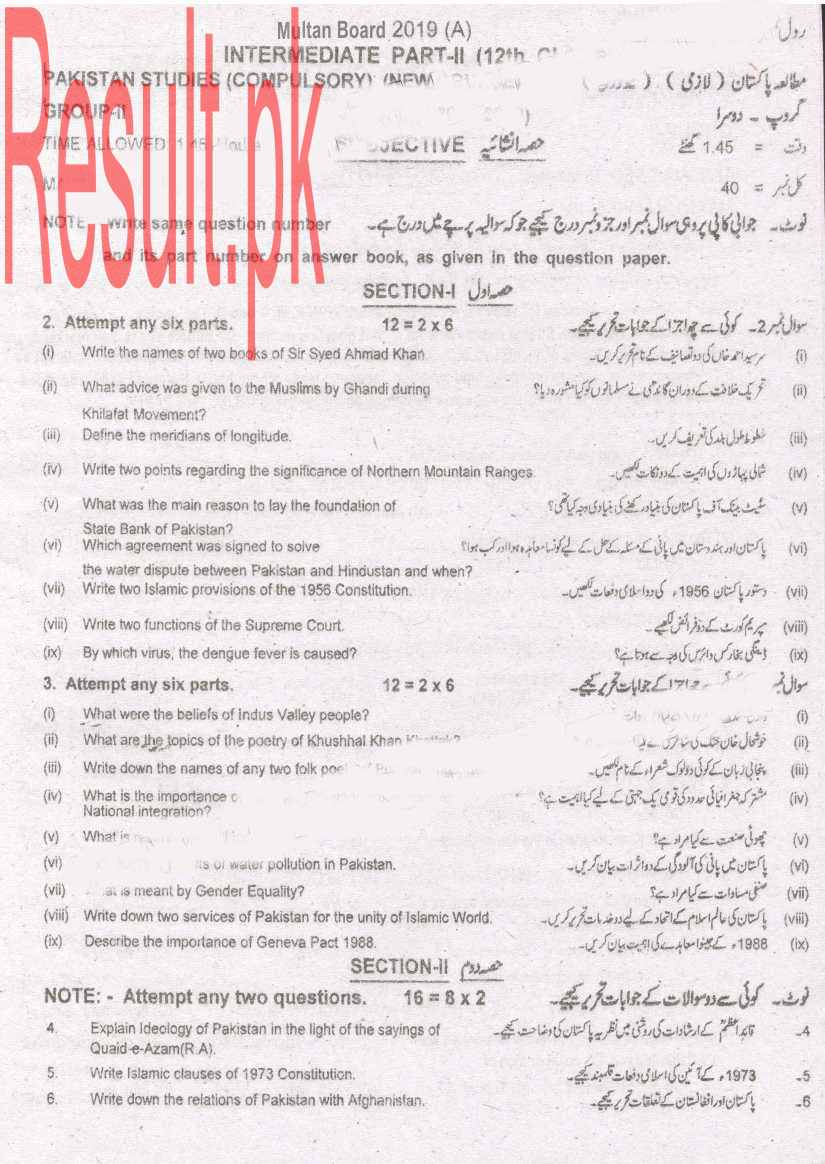 Result.pk
Multan Board 2019 (A)
رول
INTERMEDIATE PART-II (12th
PAKISTAN STUDIES (COMPULSORY) (NEW
مطالعہ پاکستان ( لازمی )
GROUP-II
گروپ ۔ دوسرا
TIME ALLOWED
SUBJECTIVE حصہ انشائیہ
وقت = 1.45 گھنٹے
کل نمبر = 40
NOTE Write same question number
نوٹ ۔ جوابی کاپی پر وہی سوال نمبر اور جزو نمبر درج کیجیے جو کہ سوالیہ پرچے میں درج ہے۔
and its part number on answer book, as given in the question paper.
SECTION-I حصہ اول
2. Attempt any six parts. 12 = 2 x 6 سوال نمبر 2۔ کوئی سے چھ اجزا کے جوابات تحریر کیجیے۔
(i) Write the names of two books of Sir Syed Ahmad Khan سر سید احمد خاں کی دو تصانیف کے نام تحریر کریں۔ (i)
(ii) What advice was given to the Muslims by Ghandi during تحریک خلافت کے دوران گاندھی نے مسلمانوں کو کیا مشورہ دیا؟ (ii)
Khilafat Movement?
(iii) Define the meridians of longitude. خطوط طول بلد کی تعریف کریں۔ (iii)
(iv) Write two points regarding the significance of Northern Mountain Ranges. شمالی پہاڑوں کی اہمیت کے دو نکات لکھیں۔ (iv)
(v) What was the main reason to lay the foundation of سٹیٹ بینک آف پاکستان کی بنیاد رکھنے کی بنیادی وجہ کیا تھی؟ (v)
State Bank of Pakistan?
(vi) Which agreement was signed to solve پاکستان اور ہندوستان میں پانی کے مسئلہ کے حل کے لیے کونسا معاہدہ ہوا اور کب ہوا؟ (vi)
the water dispute between Pakistan and Hindustan and when?
(vii) Write two Islamic provisions of the 1956 Constitution. دستور پاکستان 1956ء کی دو اسلامی دفعات لکھیں۔ (vii)
(viii) Write two functions of the Supreme Court. سپریم کورٹ کے دو فرائض لکھیے۔ (viii)
(ix) By which virus, the dengue fever is caused? ڈینگی بخار کس وائرس کی وجہ سے ہوتا ہے؟ (ix)
3. Attempt any six parts. 12 = 2 x 6 سوال نمبر اجزا کے جوابات تحریر کیجیے۔
(i) What were the beliefs of Indus Valley people? (i)
(ii) What are the topics of the poetry of Khushhal Khan خوشحال خان خٹک کی شاعری کے (ii)
(iii) Write down the names of any two folk پنجابی زبان کے کوئی دو لوک شعراء کے نام لکھیں۔ (iii)
(iv) What is the importance مشترکہ جغرافیائی حدود کی قومی یک جہتی کے لیے کیا اہمیت ہے؟ (iv)
National integration?
(v) What is چھوٹی صنعت سے کیا مراد ہے؟ (v)
(vi) of water pollution in Pakistan. پاکستان میں پانی کی آلودگی کے دو اثرات بیان کریں۔ (vi)
(vii) is meant by Gender Equality? صنفی مساوات سے کیا مراد ہے؟ (vii)
(viii) Write down two services of Pakistan for the unity of Islamic World. پاکستان کی عالم اسلام کے اتحاد کے لیے دو خدمات تحریر کریں۔ (viii)
(ix) Describe the importance of Geneva Pact 1988. 1988ء کے جینوا معاہدے کی اہمیت بیان کریں۔ (ix)
SECTION-II حصہ دوم
NOTE: - Attempt any two questions. 16 = 8 x 2 نوٹ ۔ کوئی سے دو سوالات کے جوابات تحریر کیجیے۔
4. Explain Ideology of Pakistan in the light of the sayings of قائد اعظمؒ کے ارشادات کی روشنی میں نظریہ پاکستان کی وضاحت کیجیے۔ 4۔
Quaid-e-Azam(R.A).
5. Write Islamic clauses of 1973 Constitution. 1973ء کے آئین کی اسلامی دفعات قلمبند کیجیے۔ 5۔
6. Write down the relations of Pakistan with Afghanistan. پاکستان اور افغانستان کے تعلقات تحریر کیجیے۔ 6۔